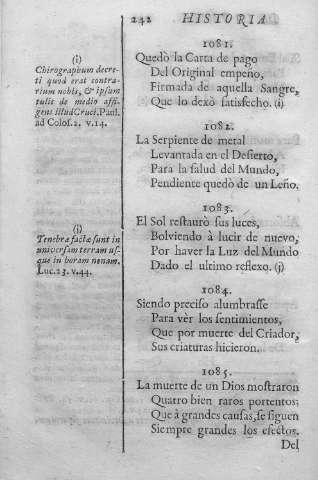 242 HISTORIA
1081.
(i)
Chirographum decre-
ti quod erat contra-
rium nobis, & ipsum
tulit de medio affi-
gens illud Cruci. Paul.
ad Colos. 2. v. 14.
Quedò la Carta de pago
Del Original empeño,
Firmada de aquella Sangre,
Que lo dexò satisfecho. (i)
1082.
La Serpiente de metal
Levantada en el Desierto,
Para la salud del Mundo,
Pendiente quedò de un Leño.
1083.
(j)
Tenebræ factæ sunt in
universam terram us-
que in horam nonam.
Luc. 23. v. 44.
El Sol restaurò sus luces,
Bolviendo à lucir de nuevo,
Por haver la Luz del Mundo
Dado el ultimo reflexo. (j)
1084.
Siendo preciso alumbrasse
Para vèr los sentimientos,
Que por muerte del Criador,
Sus criaturas hicieron.
1085.
La muerte de un Dios mostraron
Quatro bien raros portentos;
Que à grandes causas, se siguen
Siempre grandes los efectos.
Del